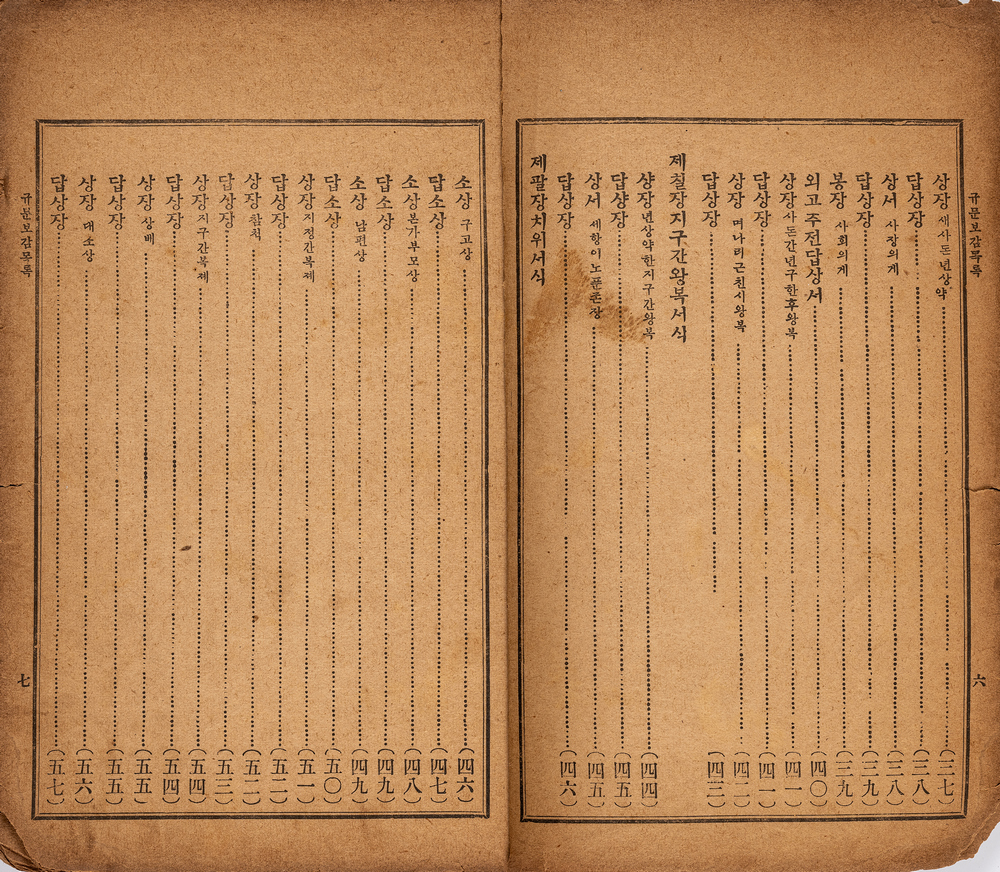 규문보감목록
六
상장 새사돈년상약 (三七)
답상장 (三八)
상서 사장의게 (三八)
답상장 (三九)
봉장 사회의게 (三九)
외고주전답상서 (四〇)
상장 사돈간년구한후왕복 (四一)
답상장 (四一)
상장 며나리근친시왕복 (四二)
답상장 (四三)
제칠장지구간왕복서식
샹장 년상약한지구간왕복 (四四)
답샹장 (四五)
상서 세항이노푼존장 (四五)
답상장 (四六)
제팔장치위서식
소상 구고상 (四六)
답소상 (四七)
소상 본가부모상 (四八)
답소상 (四九)
소상 남편상 (四九)
답소상 (五〇)
상장 지정간복제 (五一)
답상장 (五二)
상장 참척 (五二)
답상장 (五三)
상장 지구간복제 (五四)
답상장 (五四)
상장 상배 (五五)
답상장 (五五)
상장 대소상 (五六)
답상장 (五七)
규문보감목록
七